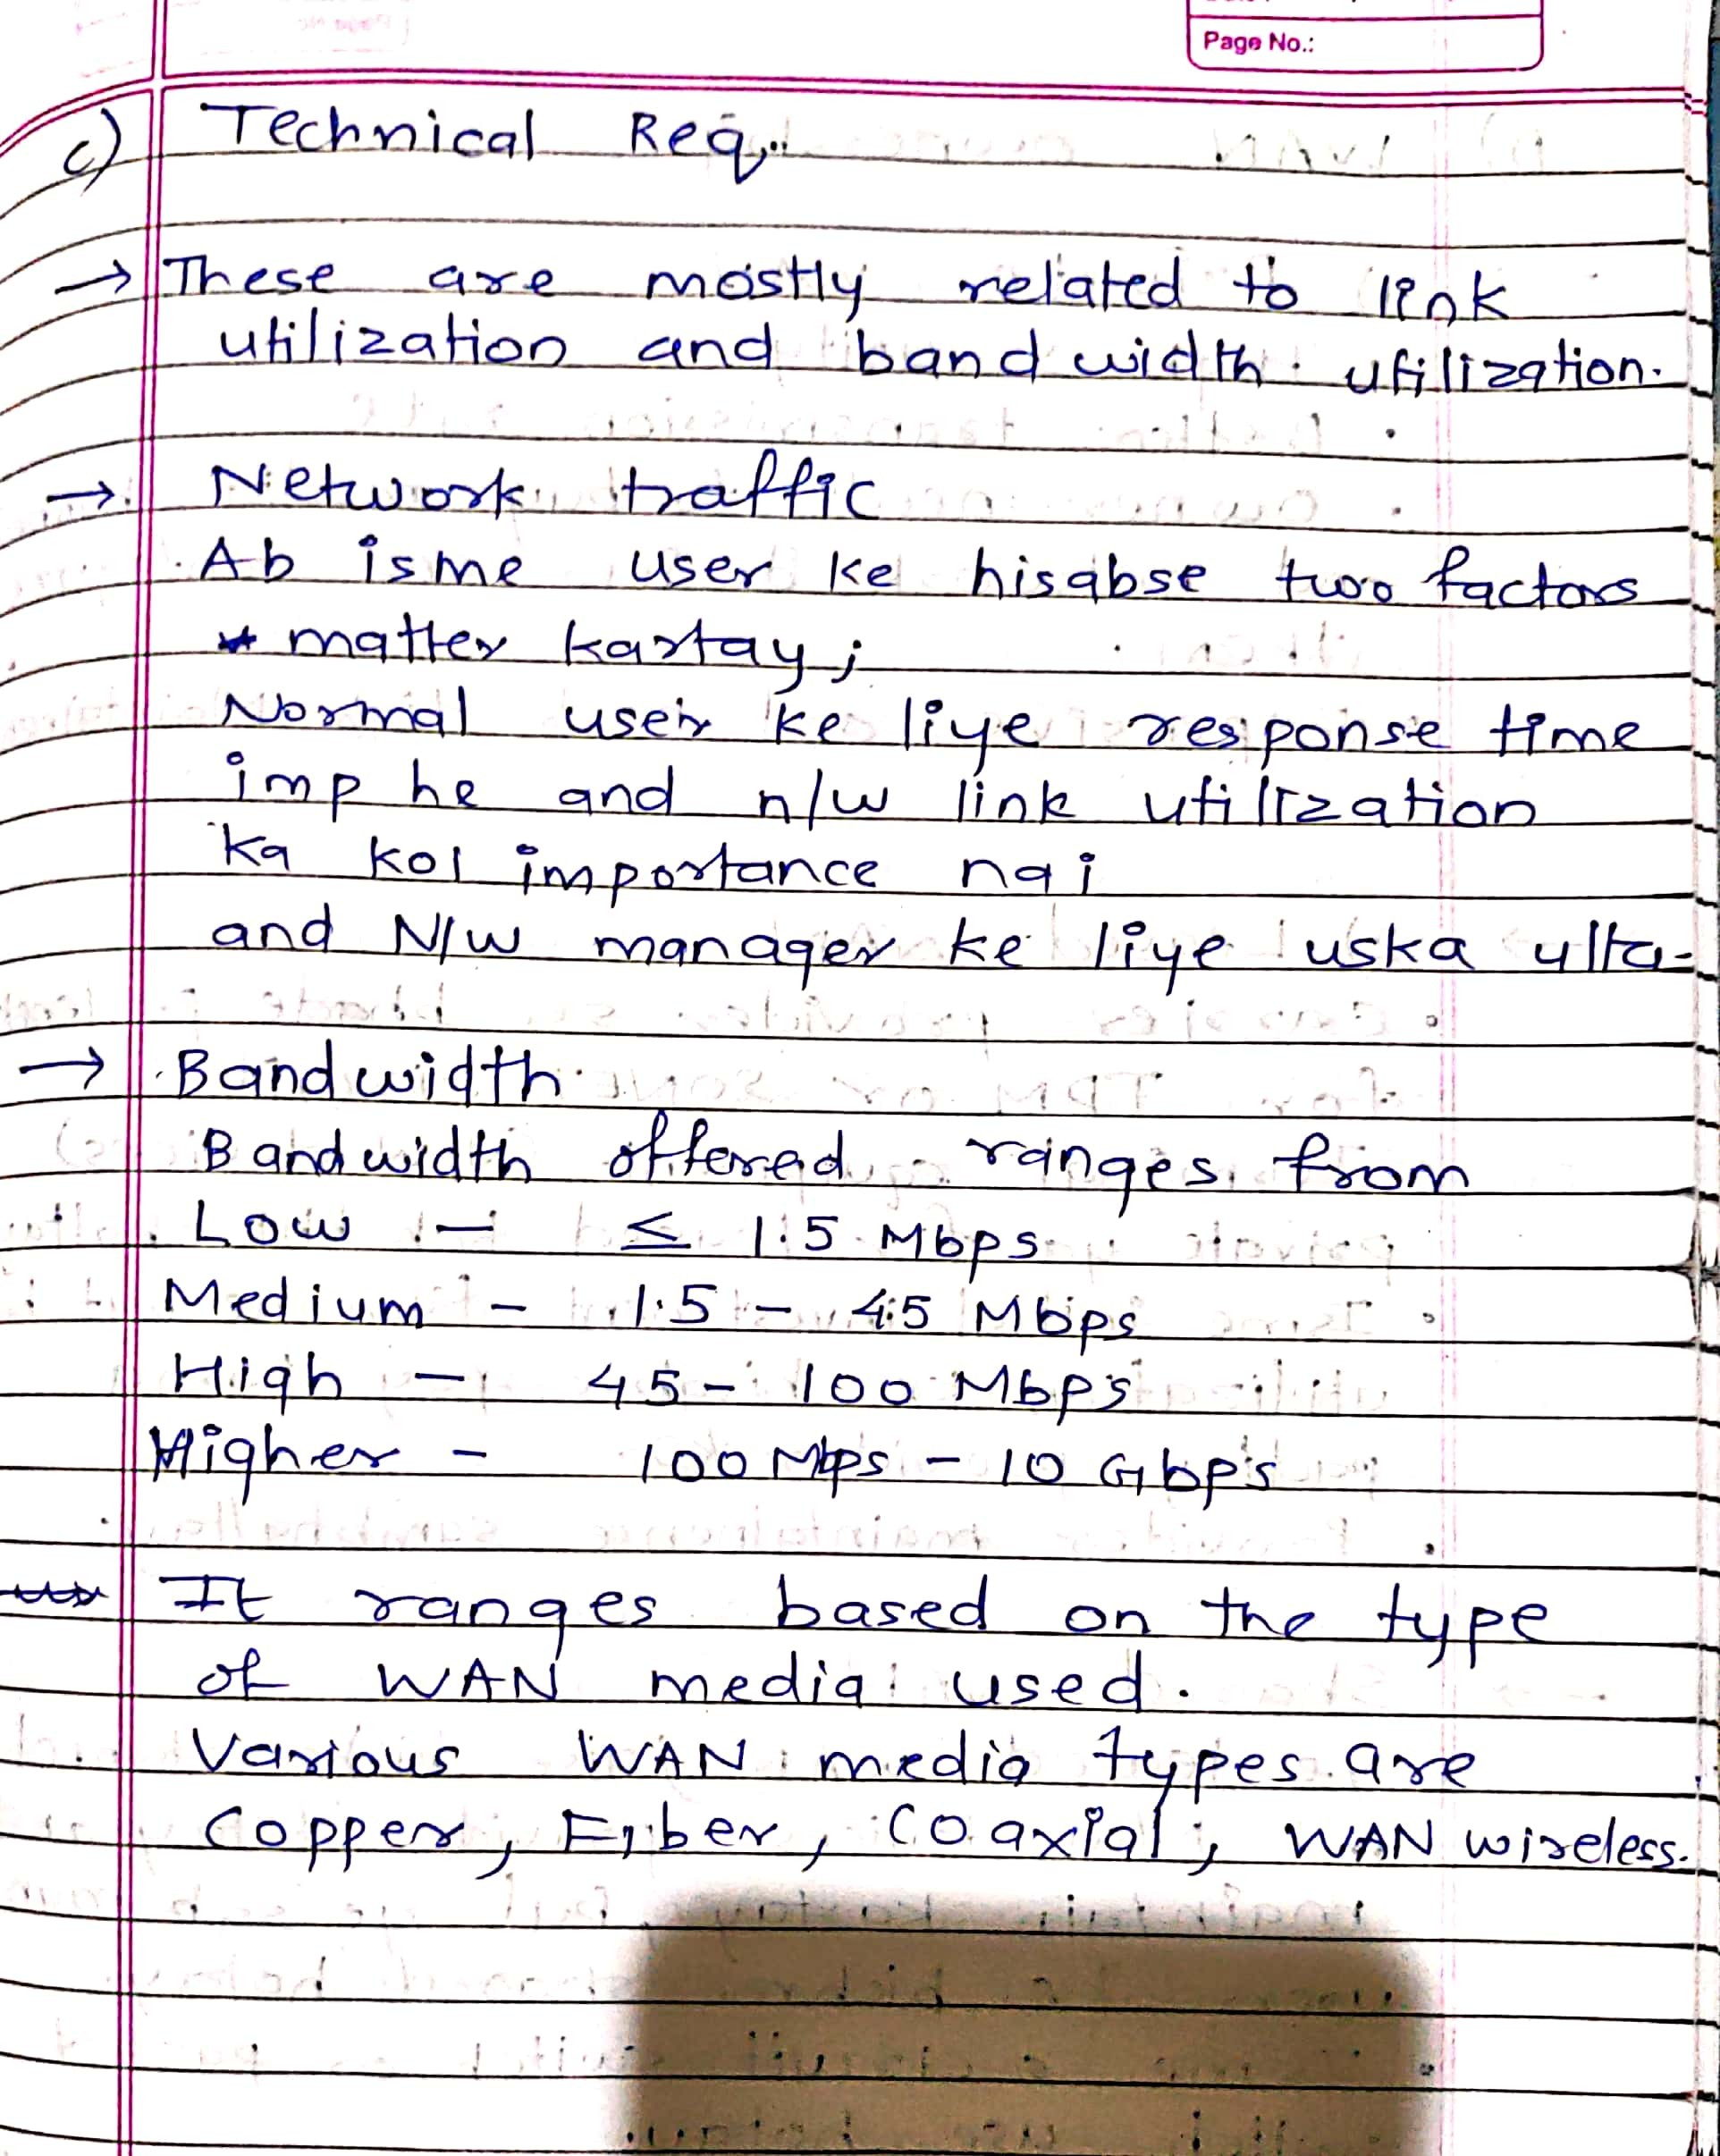 Page No.:
c) Technical Req.
→ These are mostly related to link
utilization and bandwidth utilization.
→ Network traffic
Ab isme user ke hisabse two factors
matter kartay;
Normal user ke liye response time
imp he and n/w link utilization
ka koi importance nai
and N/w manager ke liye uska ulta.
→ Bandwidth
Bandwidth offered ranges from
Low - ≤ 1.5 Mbps
Medium - 1.5 - 45 Mbps
High - 45 - 100 Mbps
Higher - 100 Mbps - 10 Gbps
It ranges based on the type
of WAN media used.
Various WAN media types are
Copper, Fiber, Coaxial, WAN wireless.